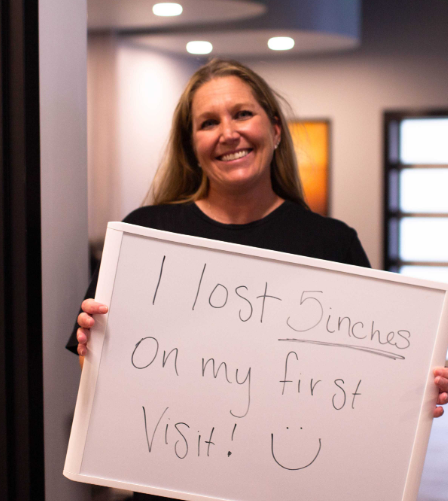 I lost 5inches
On my first
Visit! Ü